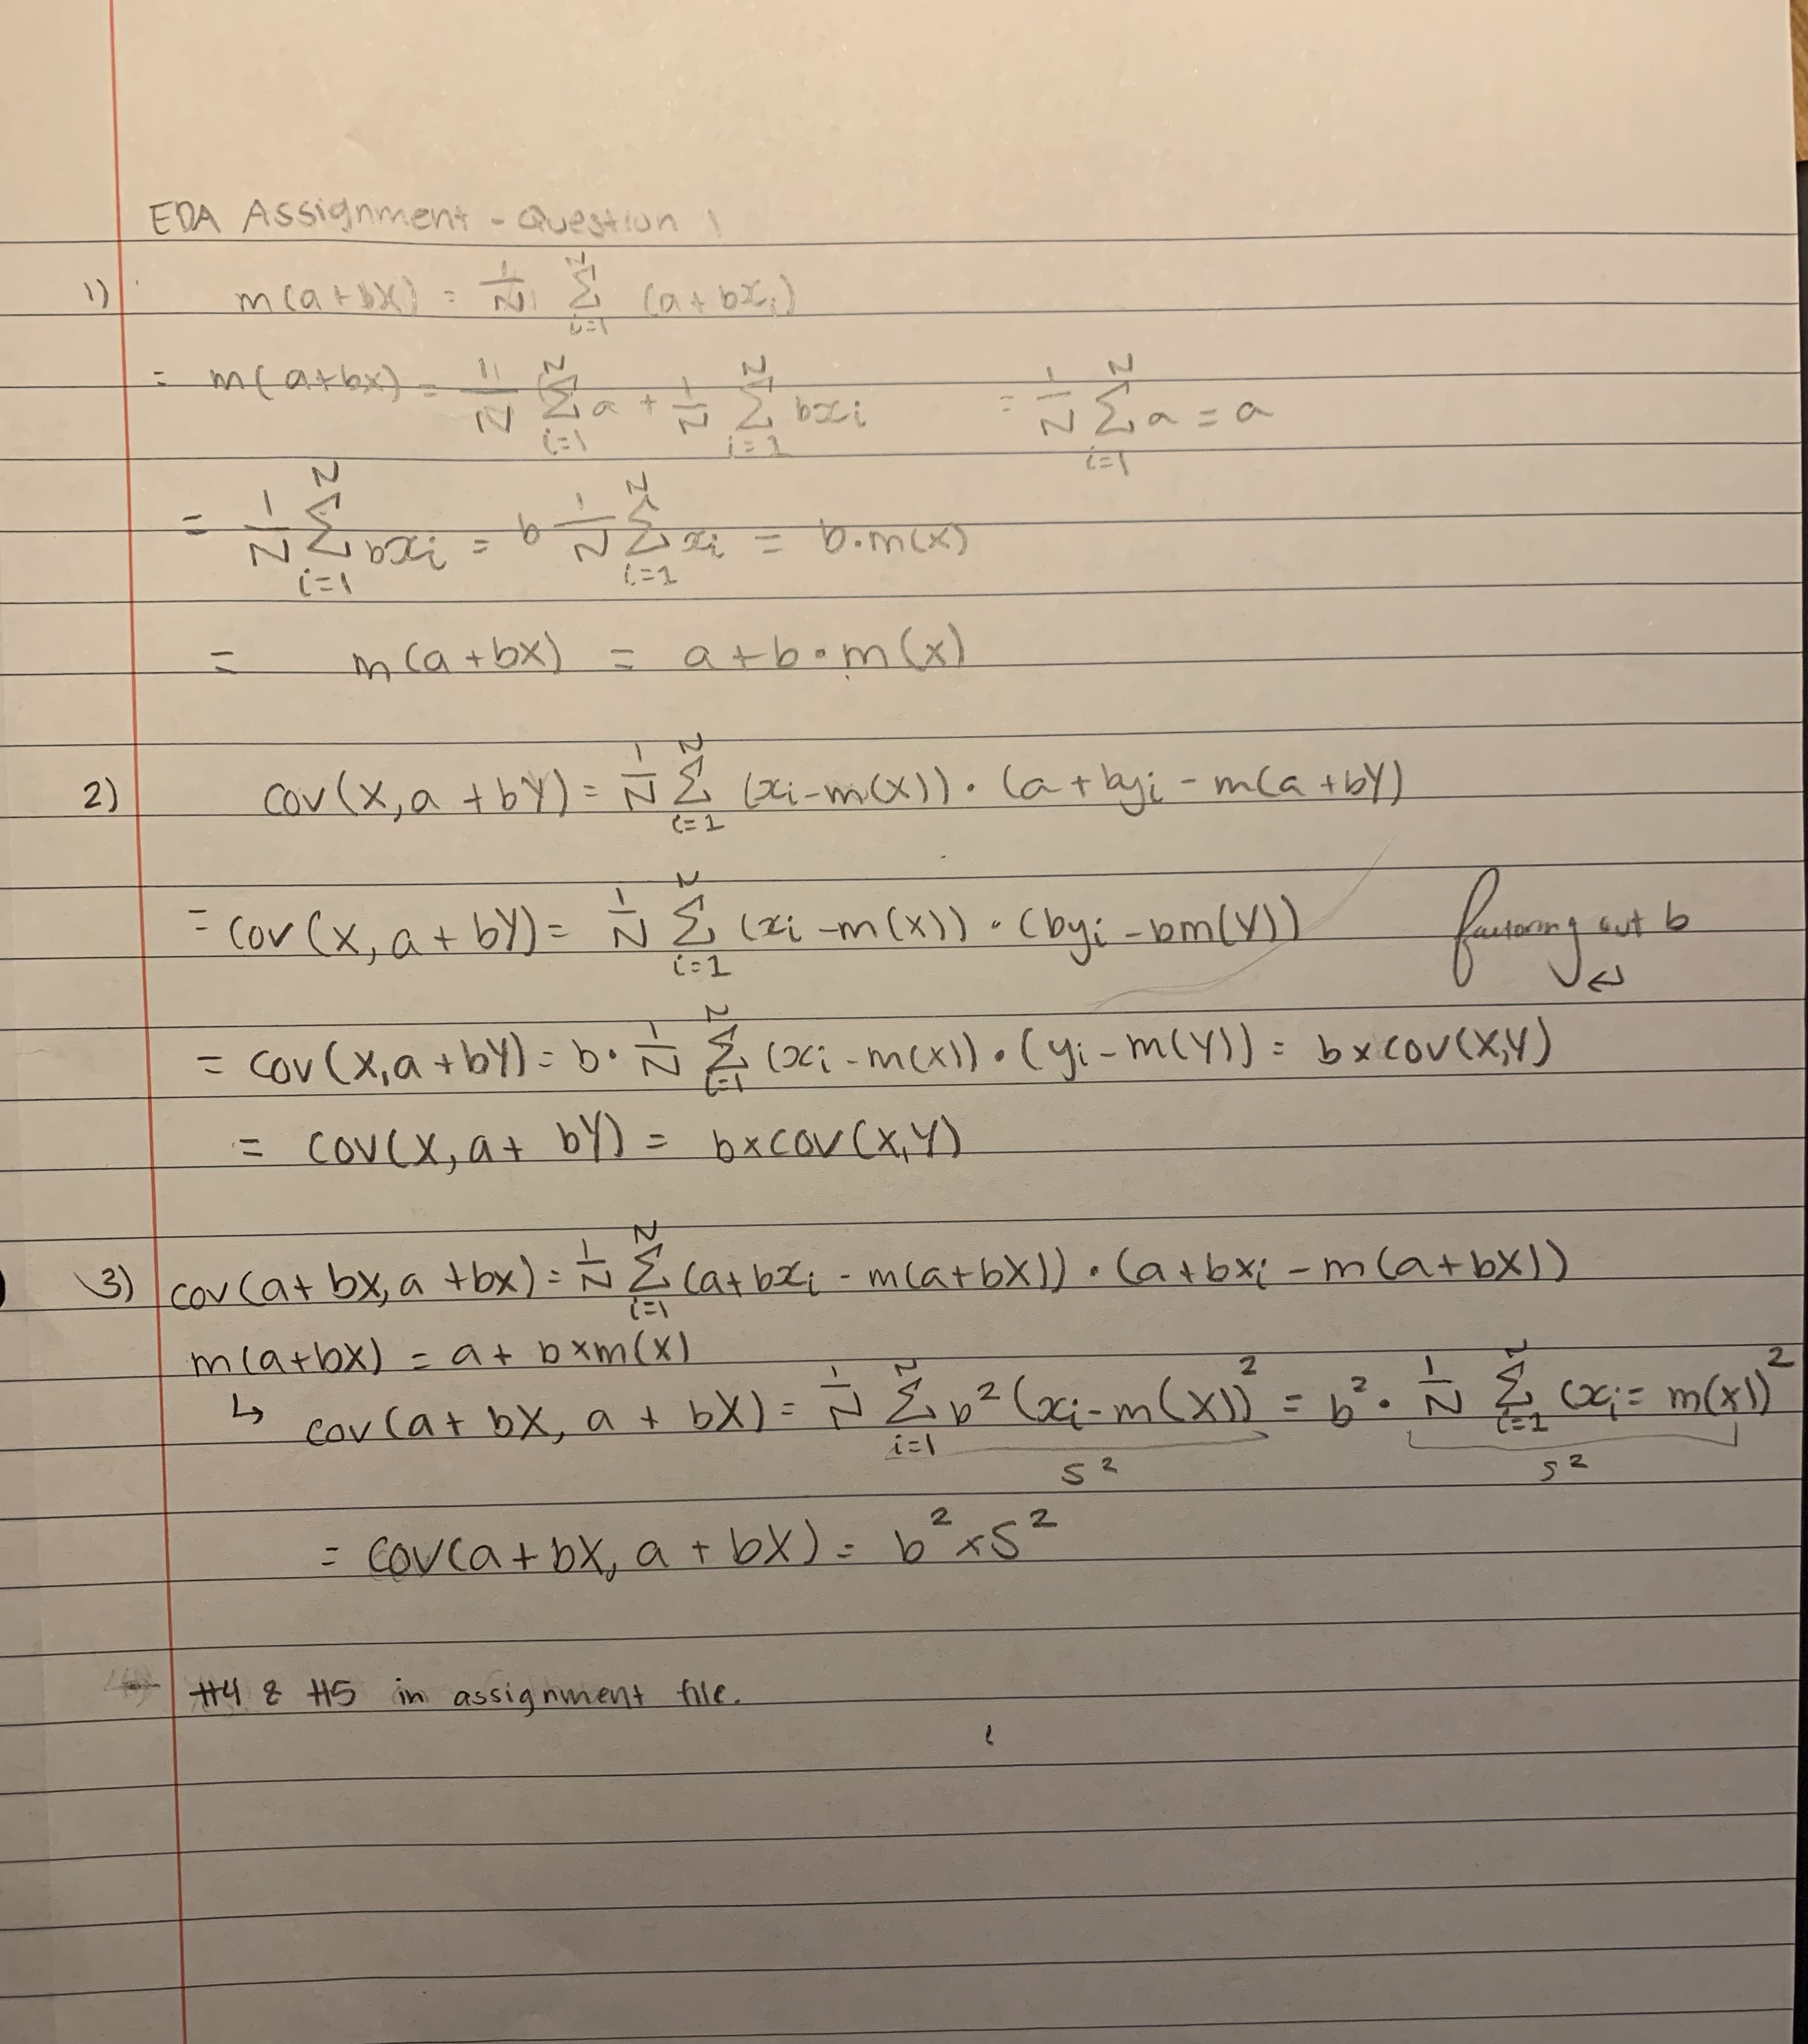 EDA Assignment - Question 1
1) m(a+bX) = 1/N ∑_{i=1}^{N} (a+bx_i)
= m(a+bx) = 1/N ∑_{i=1}^{N} a + 1/N ∑_{i=1}^{N} bx_i = 1/N ∑_{i=1}^{N} a = a
= 1/N ∑_{i=1}^{N} bx_i = b 1/N ∑_{i=1}^{N} x_i = b·m(x)
= m(a+bX) = a+b·m(x)
2) cov(X, a+bY) = 1/N ∑_{i=1}^{N} (x_i-m(X))·(a+by_i-m(a+bY)
= cov(X, a+bY) = 1/N ∑_{i=1}^{N} (x_i-m(X))·(by_i-bm(Y)) factoring out b ↩
= cov(X, a+bY) = b·1/N ∑_{i=1}^{N} (x_i-m(X))·(y_i-m(Y)) = b×cov(X,Y)
= cov(X, a+bY) = b×cov(X,Y)
3) cov(a+bx, a+bx) = 1/N ∑_{i=1}^{N} (a+bx_i-m(a+bX))·(a+bx_i-m(a+bX))
m(a+bX) = a+b×m(X)
↳ cov(a+bX, a+bX) = 1/N ∑_{i=1}^{N} b²(x_i-m(X))² = b²·1/N ∑_{i=1}^{N} (x_i=m(x))²
s² s²
= cov(a+bX, a+bX) = b²×S²
#4 & #5 in assignment file.